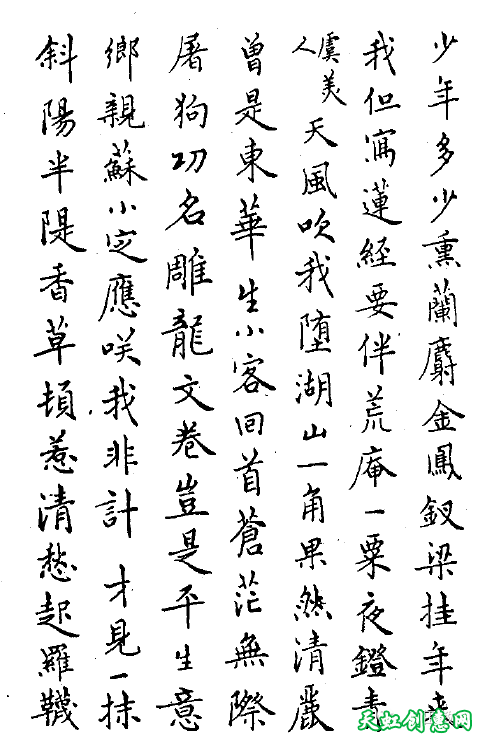 少年多少熏蘭麝金鳳釵梁挂年來
我但寫蓮經要伴荒庵一粟夜鐙青
虞美人 天風吹我墮湖山一角果然清麗
曾是東華生小客回首蒼茫無際
屠狗功名雕龍文卷豈是平生意
鄉親蘇小定應咲我非計 才見一抹
斜陽半隄香草頓惹清愁起羅韈
天虹创意网